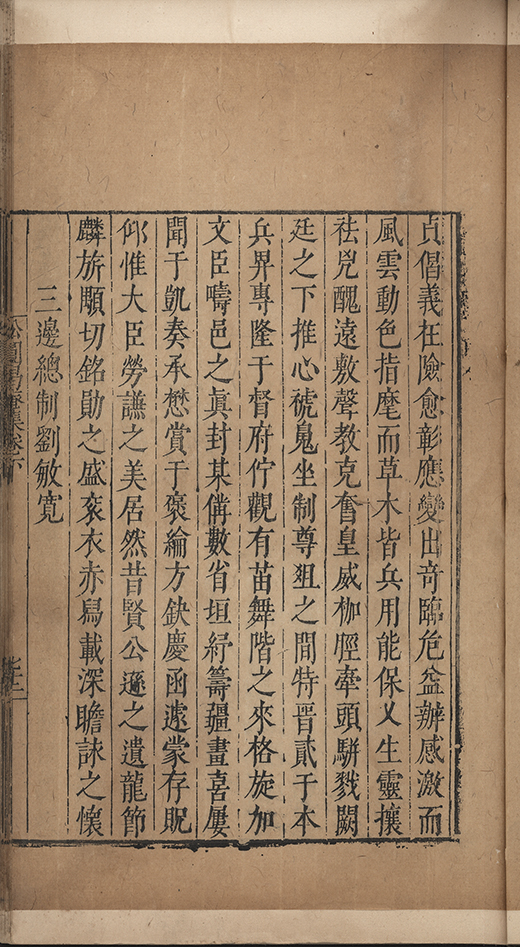 貞倡義在險愈彰應變出竒臨危益辦感激而
風雲動色指麾而草木皆兵用能保乂生靈攘
祛兇醜遠敷聲教克奮皇威枷脛牽頭駢戮闕
廷之下推心禠鬼坐制尊俎之間特晋貳于本
兵畀專隆于督府佇觀有苗舞階之來格旋加
文臣疇邑之眞封某備數省垣紆籌疆畫喜屢
聞于凱奏承懋賞于褒綸方缺慶函遽蒙存貺
仰惟大臣勞謙之美居然昔賢公遜之遺龍節
麟旂顒切銘勛之盛衮衣赤舄載深瞻詠之懷
三邊總制劉敏寛
集卷六